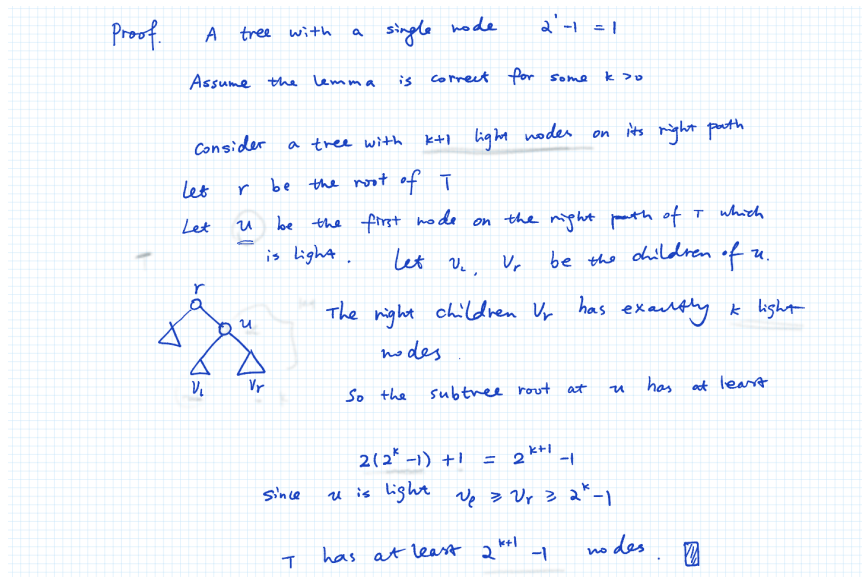 Proof. A tree with a single node 2^1 - 1 = 1
Assume the lemma is correct for some k > 0
Consider a tree with k+1 light nodes on its right path
Let r be the root of T
Let u be the first node on the right path of T which
is light. Let v_L, v_r be the children of u.
r
u
v_L v_r
The right children v_r has exactly k light
nodes.
So the subtree root at u has at least
2(2^k - 1) + 1 = 2^{k+1} - 1
since u is light v_l ≥ v_r ≥ 2^k - 1
T has at least 2^{k+1} - 1 nodes.